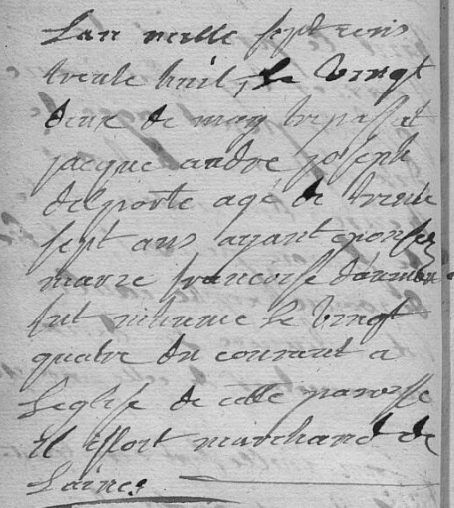 Lan mille sept cens
trente huit, le vingt
deux de may trepassat
jacque andre joseph
delporte agé de trente
sept ans ayant epousez
marie francoisse
fut inhumé le vingt
quatre du courant a
Leglise de cette paroisse
il estoit marchand de
Laines